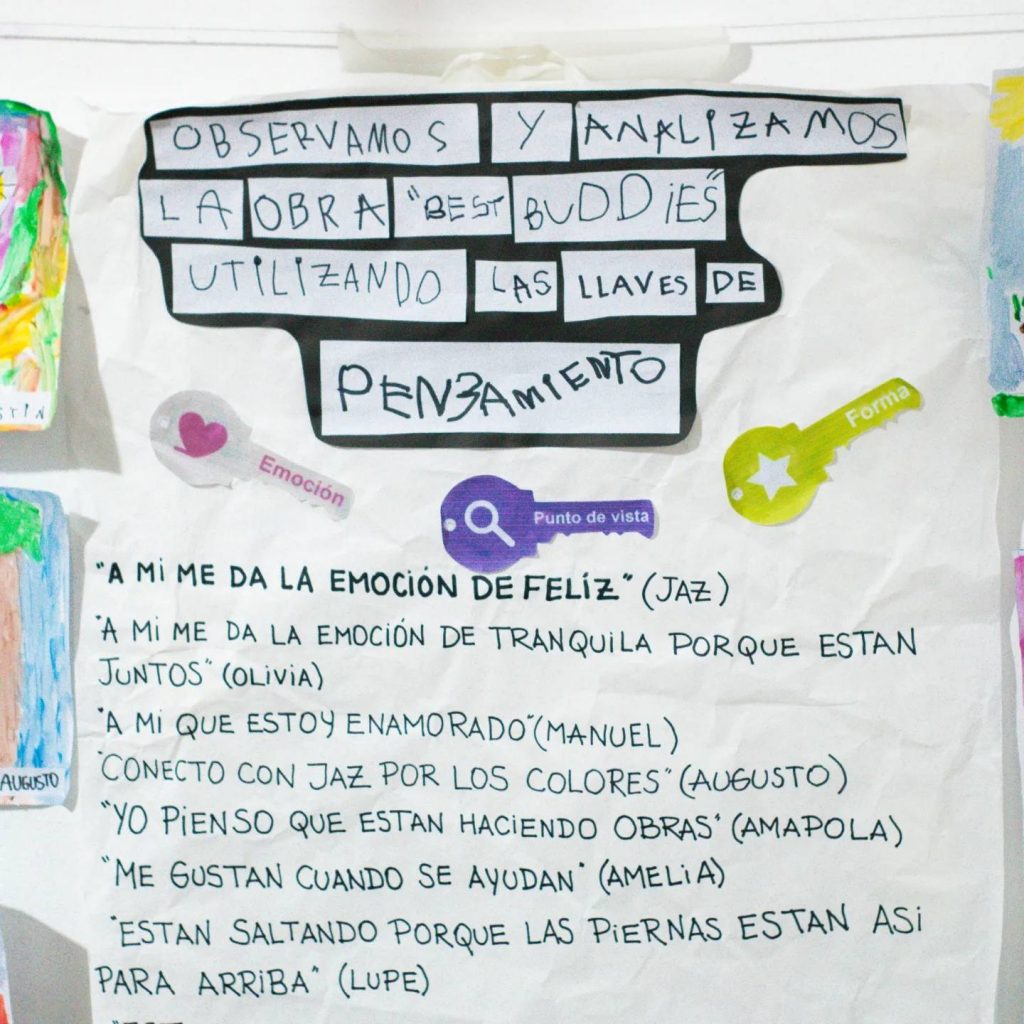 OBSERVAMOS Y ANALIZAMOS
LA OBRA "BEST BUDDIES"
UTILIZANDO LAS LLAVES DE
PENSAMIENTO
Emoción
Punto de vista
Forma
"A Mi ME DA LA EMOCIÓN DE FELIZ" (JAZ)
"A Mi ME DA LA EMOCIÓN DE TRANQUILA PORQUE ESTAN
JUNTOS" (OLIVIA)
"A MI QUE ESTOY ENAMORADO" (MANUEL)
"CONECTO CON JAZ POR LOS COLORES" (AUGUSTO)
"YO PIENSO QUE ESTAN HACIENDO OBRAS" (AMAPOLA)
"ME GUSTAN CUANDO SE AYUDAN" (AMELIA)
"ESTAN SALTANDO PORQUE LAS PIERNAS ESTAN ASI
PARA ARRIBA" (LUPE)
AUGUSTO